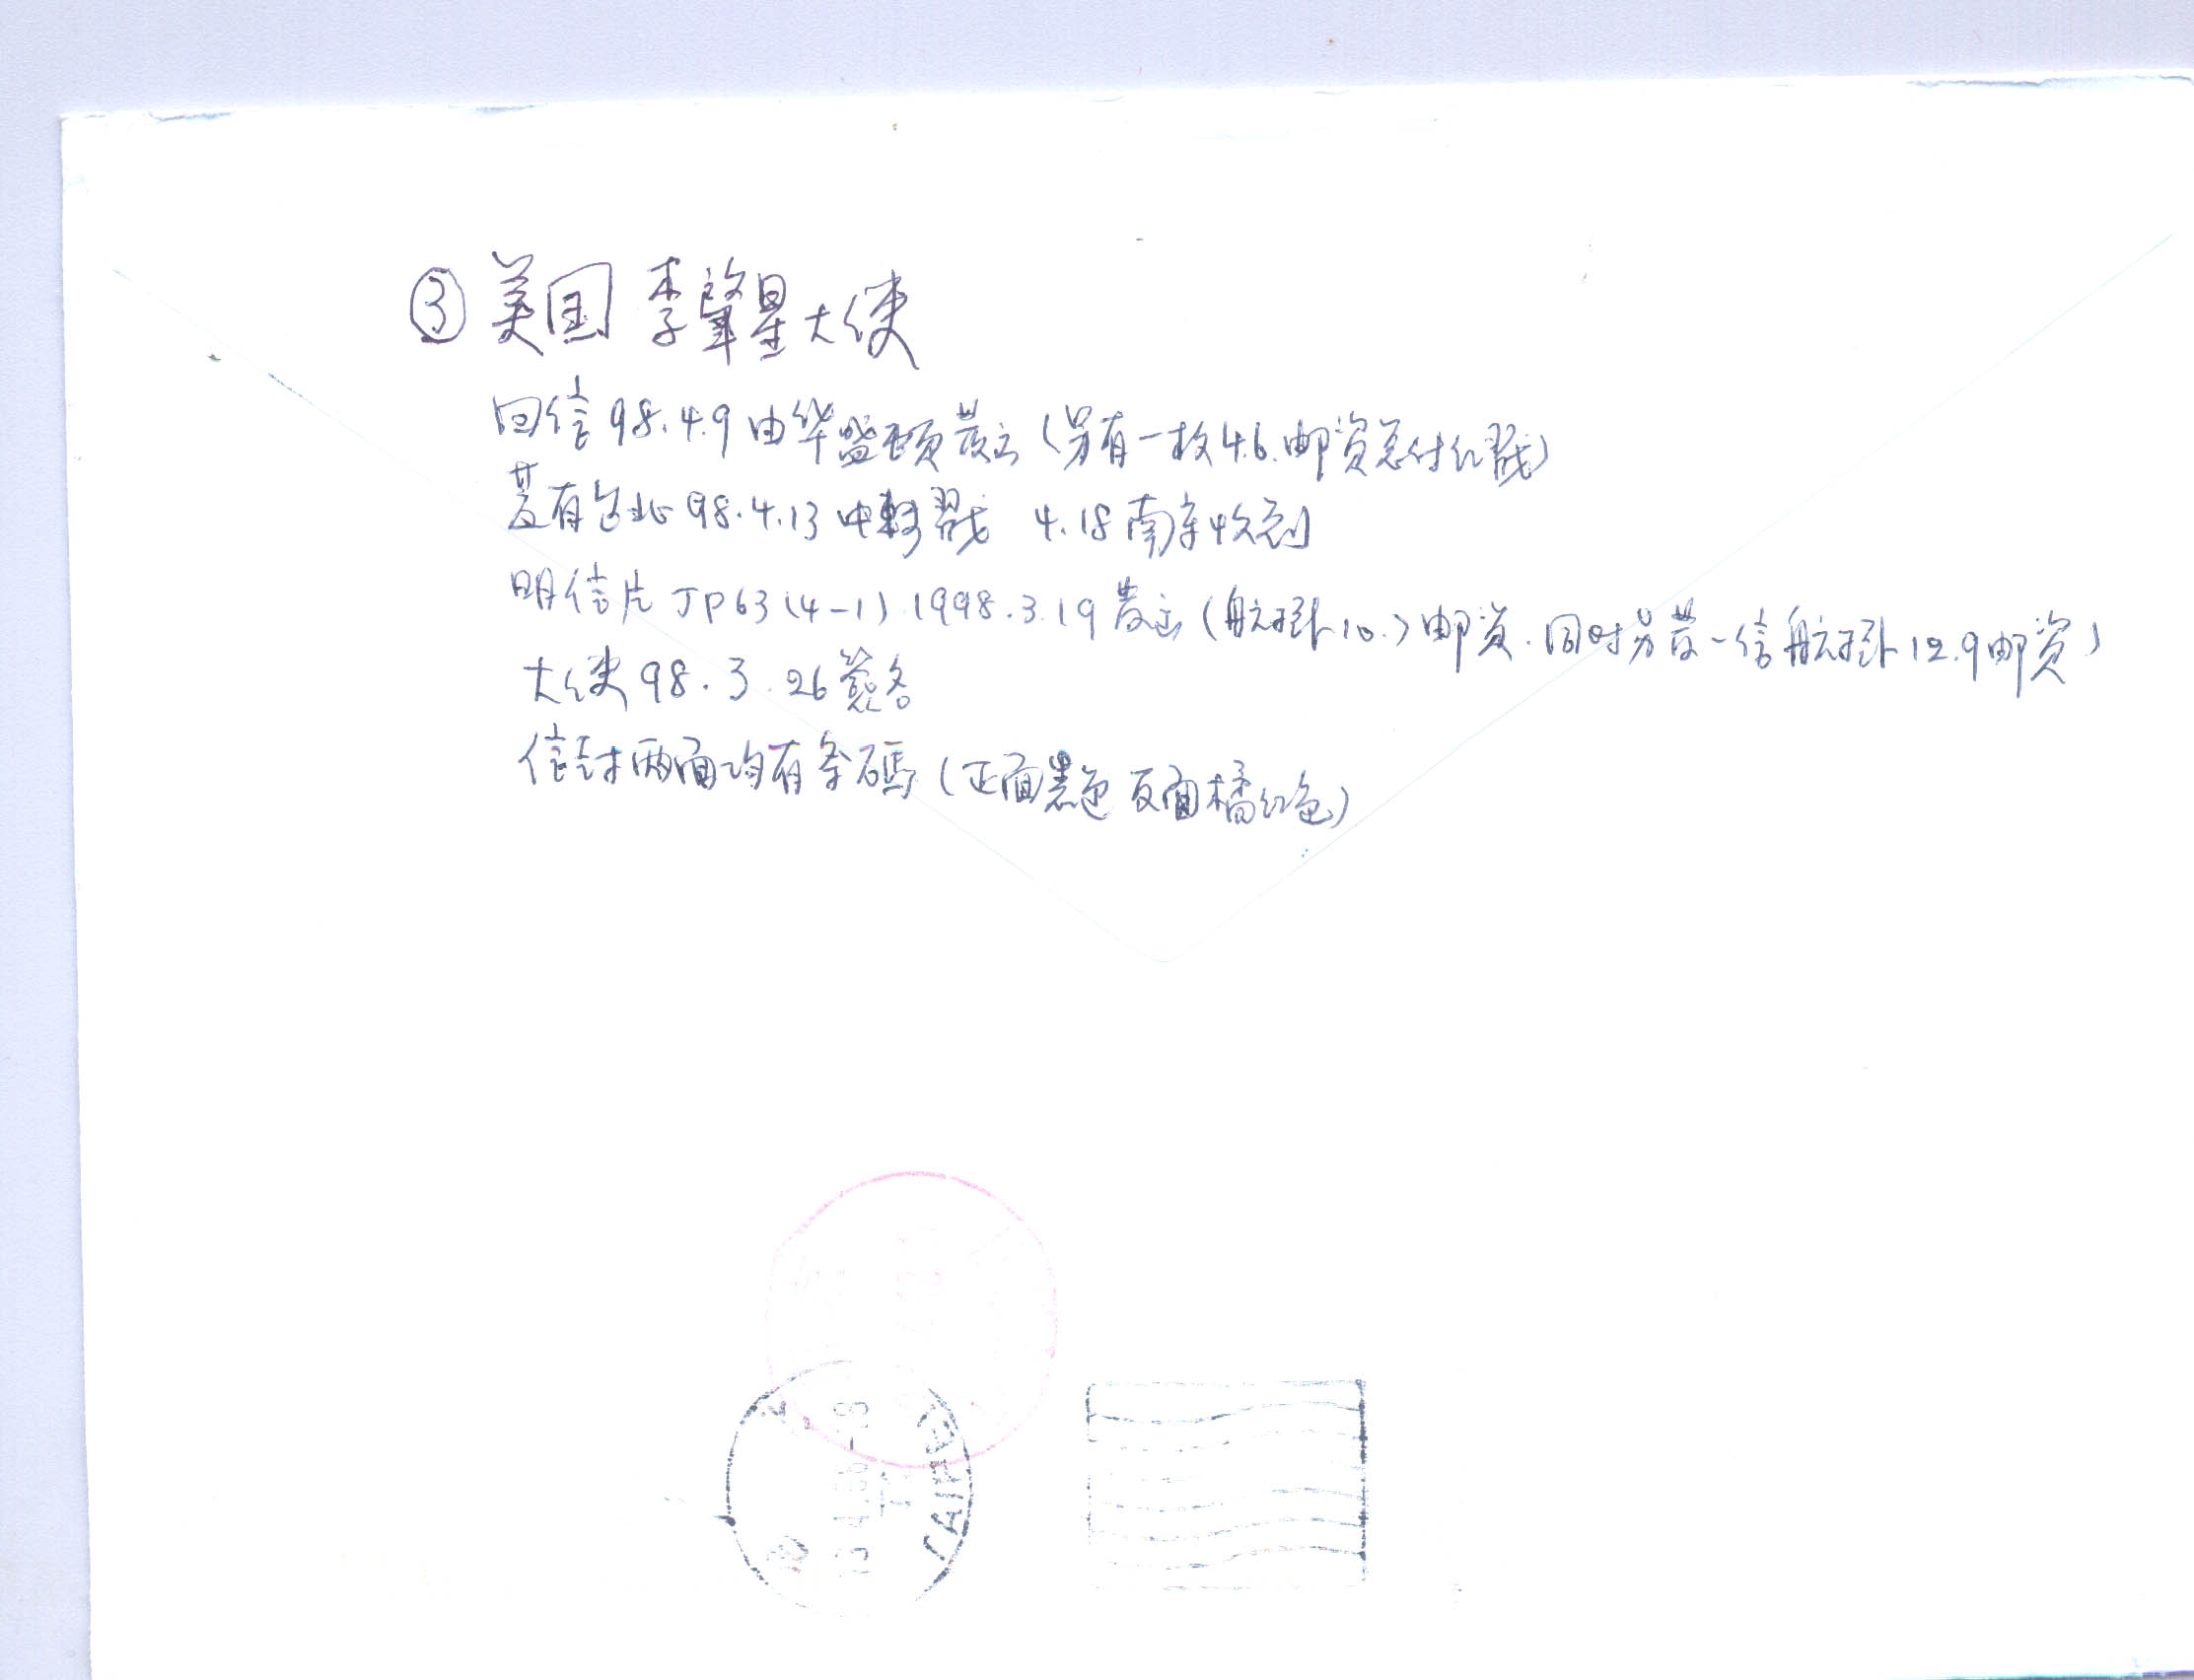 ③ 美国 李肇星大使
回信98.4.9由华盛顿发出(另有一枚4.6.邮资总付红戳)
并有台北98.4.13中转戳 4.18南京收到
明信片JP63(4-1)1998.3.19发出(航挂10.)邮资.同时另发一信航挂12.9邮资)
大使98.3.26簽名
信封两面均有条碼(正面黑色 反面橘红色)
TAIPEI